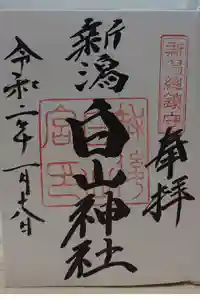 新潟總鎮守
奉拝
新潟白山神社
令和二年一月